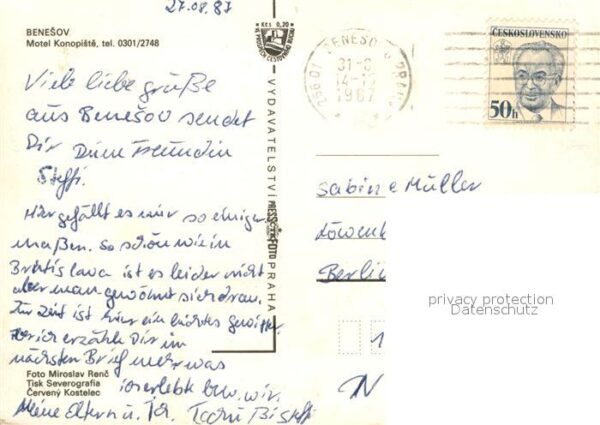 27.08.87
BENEŠOV
Motel Konopiště, tel. 0301/2748
Viele liebe grüße
aus Benešov sendet
Dir Deine Freundin
Steffi.
Hier gefällt es mir so einiger
maßen. So schön wie in
Bratislava ist es leider nicht
aber man gewöhnt sich dran.
Zur Zeit ist hier ein leichtes gewitter.
ich erzähle Dir im
nächsten Brief mehr was
ich erlebt bzw. wir.
Meine Eltern u. Ich. Tschü Bi Steffi
Foto Miroslav Renč
Tisk Severografia
Červený Kostelec
Kčs 0,20
VYDAVATELSTVÍ PRESSFOTO PRAHA
256 01 BENEŠOV U PRAHY
31-8
1987
ČESKOSLOVENSKO
50h
Sabine Müller
Löwen
Berlin
1
N
privacy protection
Datenschutz